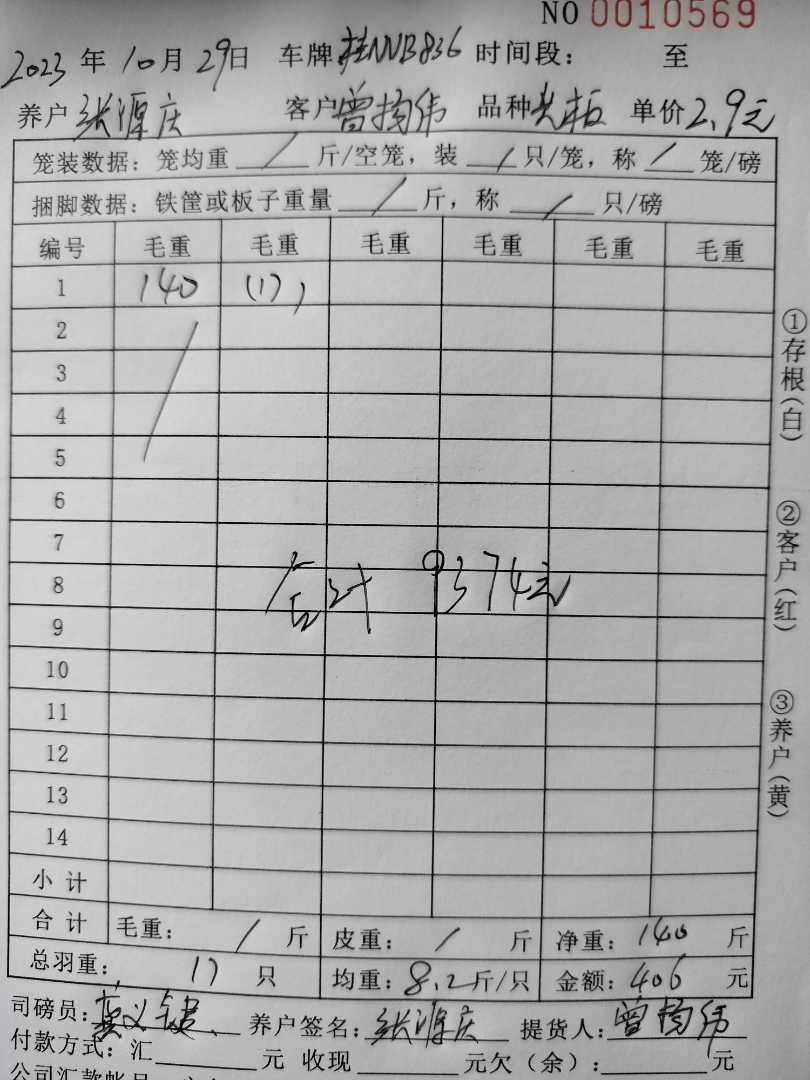 NO 0010569
2023 年 10 月 29 日 车牌 桂NNB836 时间段： 至
养户 张源庆 客户 曾杨伟 品种 单价 2.9元
笼装数据：笼均重 / 斤/空笼，装 / 只/笼，称 / 笼/磅
捆脚数据：铁筐或板子重量 / 斤，称 / 只/磅
编号 毛重 毛重 毛重 毛重 毛重 毛重
1 140 (17)
2
3
4
5
6
7
8
9
10
11
12
13
14
合计 9374元
小计
合计 毛重： / 斤 皮重： / 斤 净重： 140 斤
总羽重： 17 只 均重： 8.2 斤/只 金额： 406 元
司磅员： 养户签名： 张源庆 提货人： 曾杨伟
付款方式：汇 元 收现 元欠（余）： 元
公司汇款帐号
①存根(白)
②客户(红)
③养户(黄)